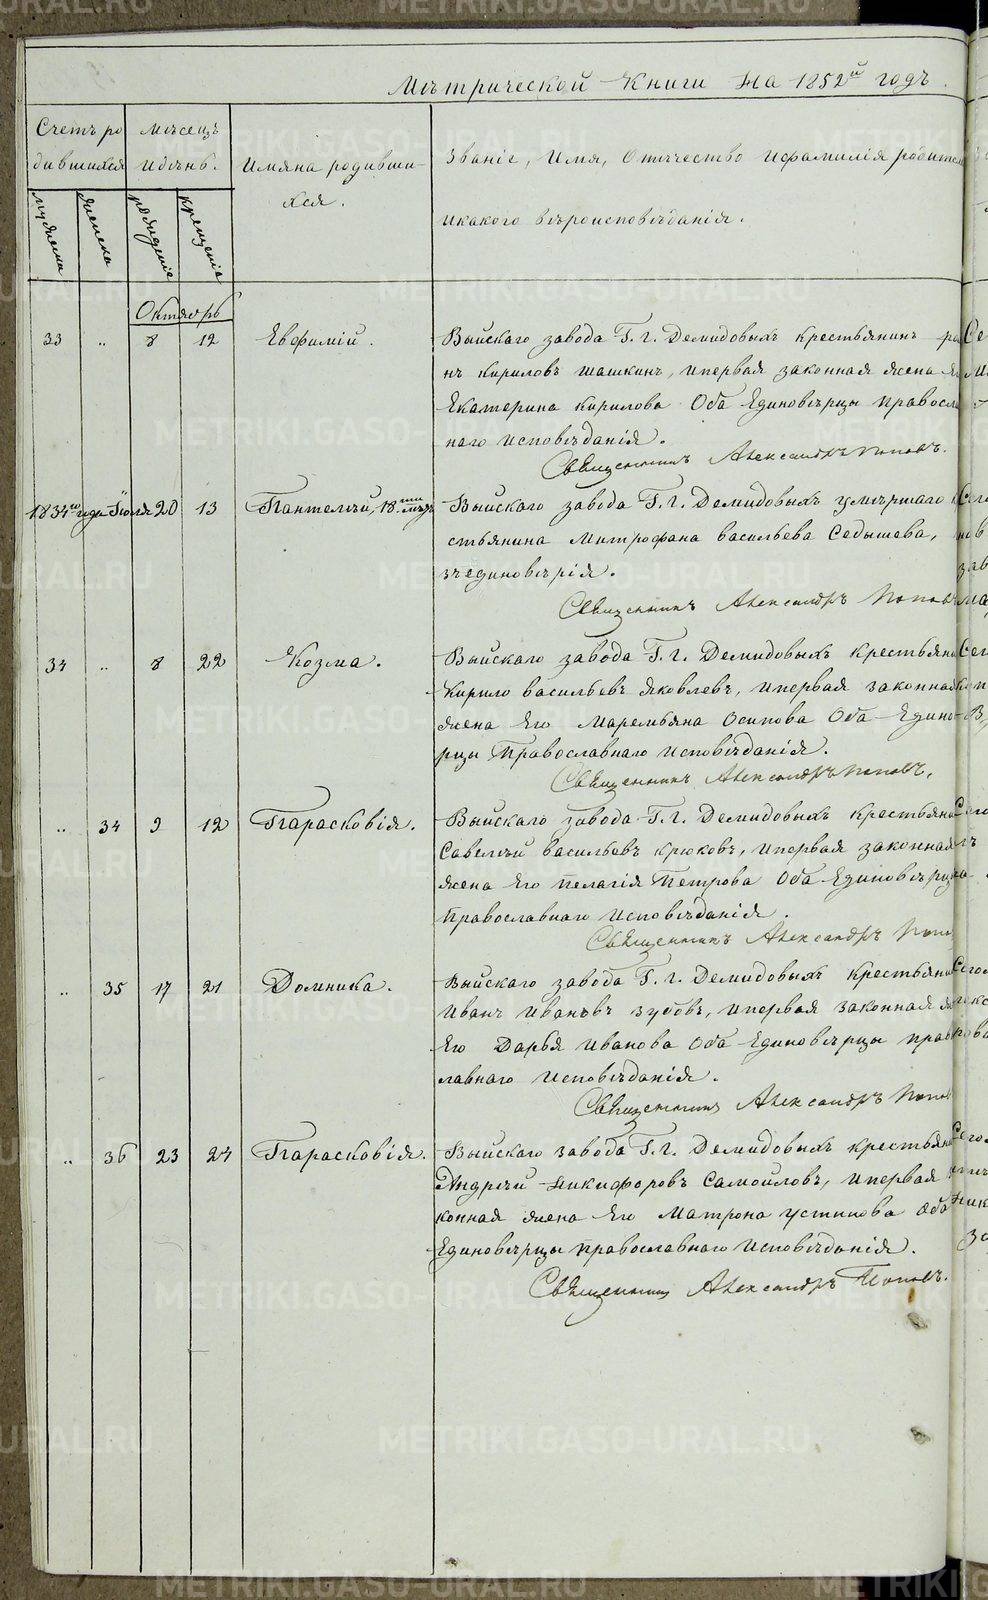 Мѣтрической Книги на 1852й годъ.
Счетъ ро
дившихся
мужеска
женска
мѣсецъ
и день.
рождение
крещение
Имяна родивши-
хся.
Званіе, Имя, Отичество и фамилія родител
и какого вѣроисповѣданія.
Октябрь
33 „ 8 12 Евфимій. Выйскаго завода Г. г. Демидовыхъ крестьянинъ
нъ Кириловъ Шашкинъ, и первая законная жена Е
Екатерина Кирилова Оба Единовѣрцы Правосл
наго исповѣданія.
Священникъ Александръ Поповъ.
1834го года Іюля 20 13 Пантелѣй, 18ти лѣтъ Выйскаго завода Г. г. Демидовыхъ умѣршаго к
стьянина Митрофана Васильева Седышева,
зъединовѣрія.
Священникъ Александръ Поповъ
34 „ 8 22 Козма. Выйскаго завода Г. г. Демидовыхъ крестьяни
Кирило Васильевъ Яковлевъ, и первая законная
жена Его Маремьяна Осипова Оба Едино
рцы Православнаго исповѣданія.
Священникъ Александръ Поповъ.
„ 34 9 12 Парасковія. Выйскаго завода Г. г. Демидовыхъ крестьяни
Савелѣй Васильевъ Крюковъ, и первая законная
жена Его Пелагія Петрова Оба Единовѣрцы
Православнаго Исповѣданія.
Священникъ Александръ Попо
„ 35 17 21 Домника. Выйскаго завода Г. г. Демидовыхъ крестьяни
Иванъ Ивановъ Зубовъ, и первая законная ж
Его Дарья Иванова Оба Единовѣрцы прав
лавнаго исповѣданія.
Священникъ Александръ Попо
„ 36 23 24 Парасковія. Выйскаго завода Г. г. Демидовыхъ крестьян
Андрѣй Никифоровъ Самойловъ, и первая
конная жена Его Матрона Устинова Оба
Единовѣрцы православнаго исповѣданія.
Священникъ Александръ Поповъ.
METRIKI.GASO-URAL.RU